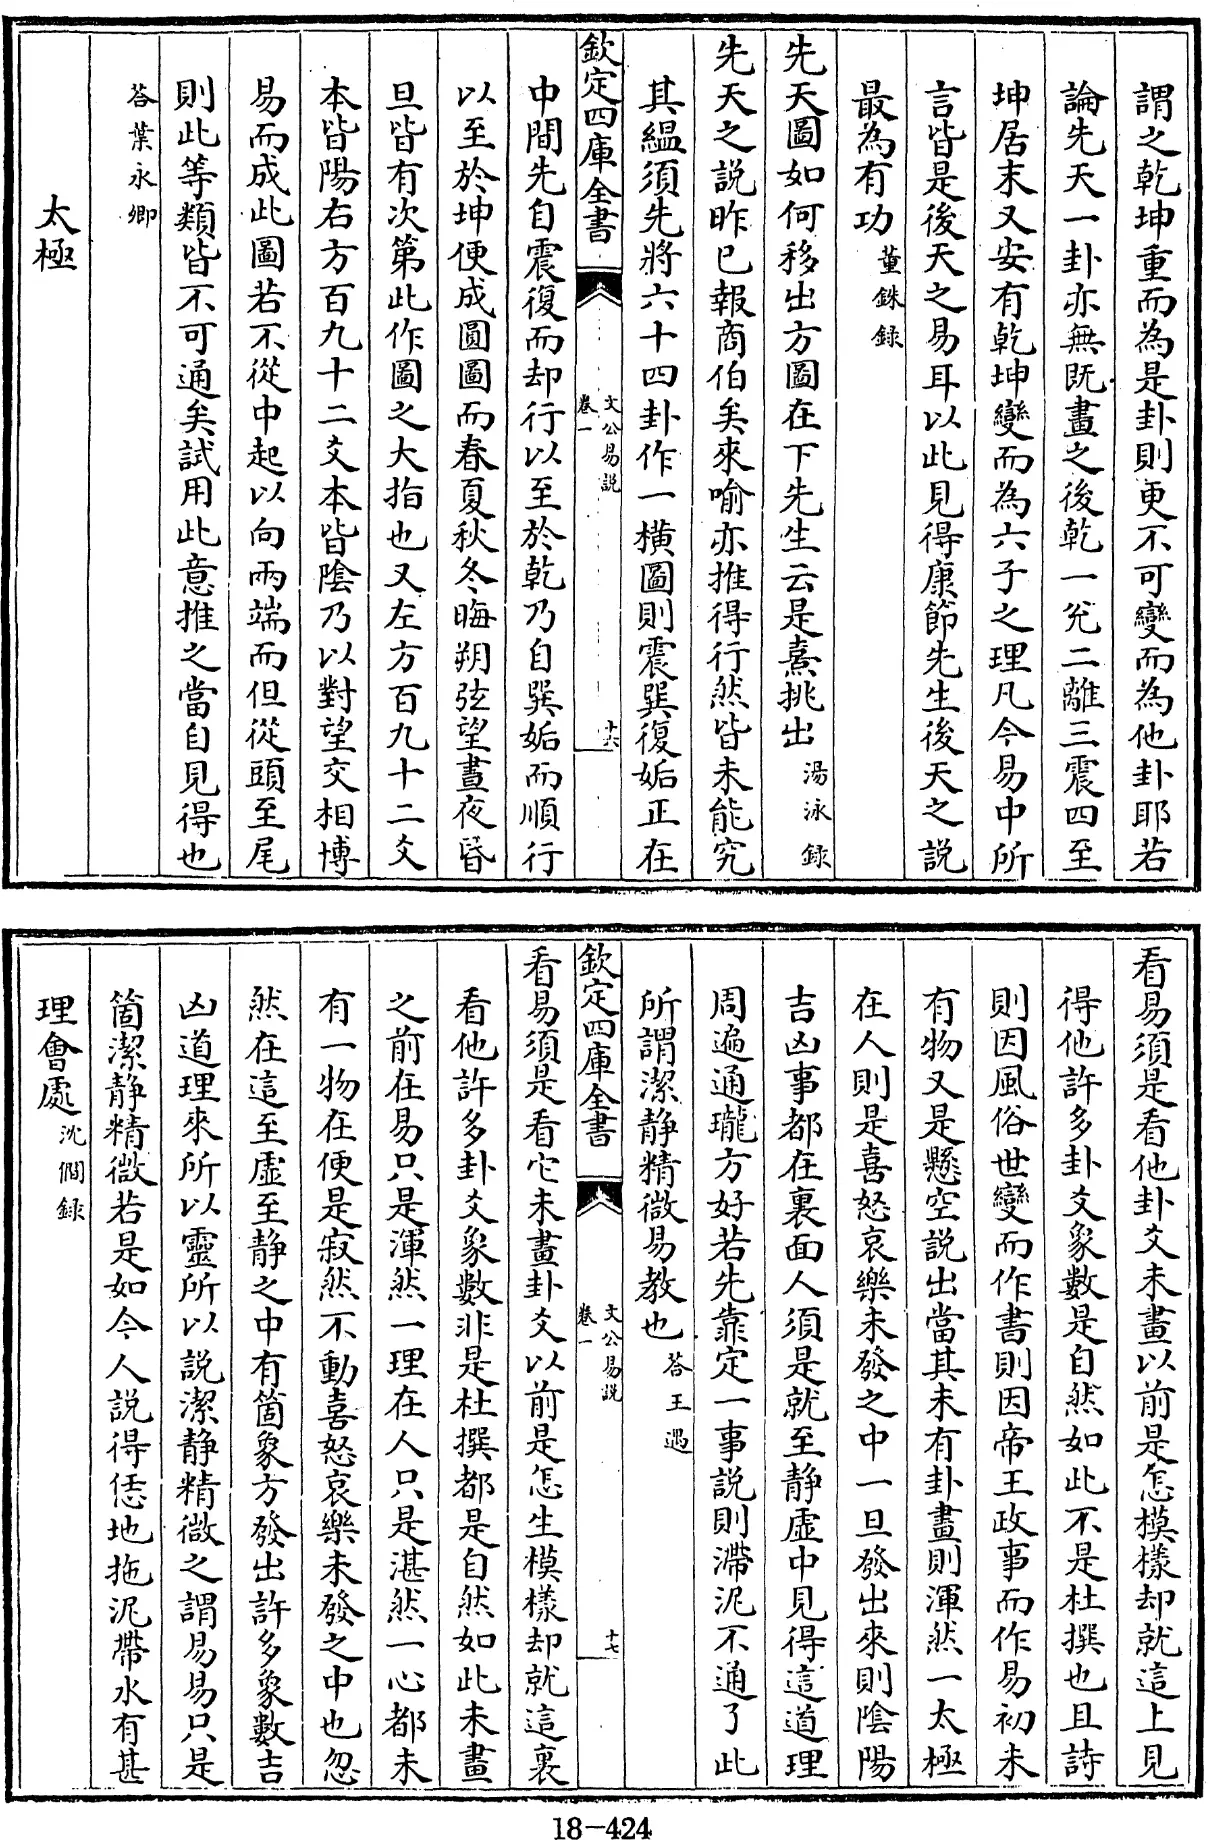 謂之乾坤重而為是卦則更不可變而為他卦耶若
論先天一卦亦無既畫之後乾一兌二離三震四至
坤居末又安有乾坤變而為六子之理凡今易中所
言皆是後天之易耳以此見得康節先生後天之說
最為有功 董銖録
先天圖如何移出方圖在下先生云是熹挑出 湯泳録
先天之說昨已報商伯矣來喻亦推得行然皆未能究
其緼須先將六十四卦作一橫圖則震巽復姤正在
欽定四庫全書 文公易說 卷一 十六
中間先自震復而却行以至於乾乃自巽姤而順行
以至於坤便成圓圖而春夏秋冬晦朔弦望晝夜昏
旦皆有次第此作圖之大指也又左方百九十二爻
本皆陽右方百九十二爻本皆陰乃以對望交相博
易而成此圖若不從中起以向兩端而但從頭至尾
則此等類皆不可通矣試用此意推之當自見得也
答葉永卿
太極
看易須是看他卦爻未畫以前是怎模樣却就這上見
得他許多卦爻象數是自然如此不是杜撰也且詩
則因風俗世變而作書則因帝王政事而作易初未
有物又是懸空說出當其未有卦畫則渾然一太極
在人則是喜怒哀樂未發之中一旦發出來則陰陽
吉凶事都在裏面人須是就至静虛中見得這道理
周遍通瓏方好若先靠定一事說則滯泥不通了此
所謂潔静精微易教也 答王遇
欽定四庫全書 文公易說 卷一 十七
看易須是看它未畫卦爻以前是怎生模樣却就這裏
看他許多卦爻象數非是杜撰都是自然如此未畫
之前在易只是渾然一理在人只是湛然一心都未
有一物在便是寂然不動喜怒哀樂未發之中也忽
然在這至虛至静之中有箇象方發出許多象數吉
凶道理來所以靈所以說潔静精微之謂易易只是
箇潔静精微若是如今人說得恁地拖泥帶水有甚
理會處 沈僩録
18-424